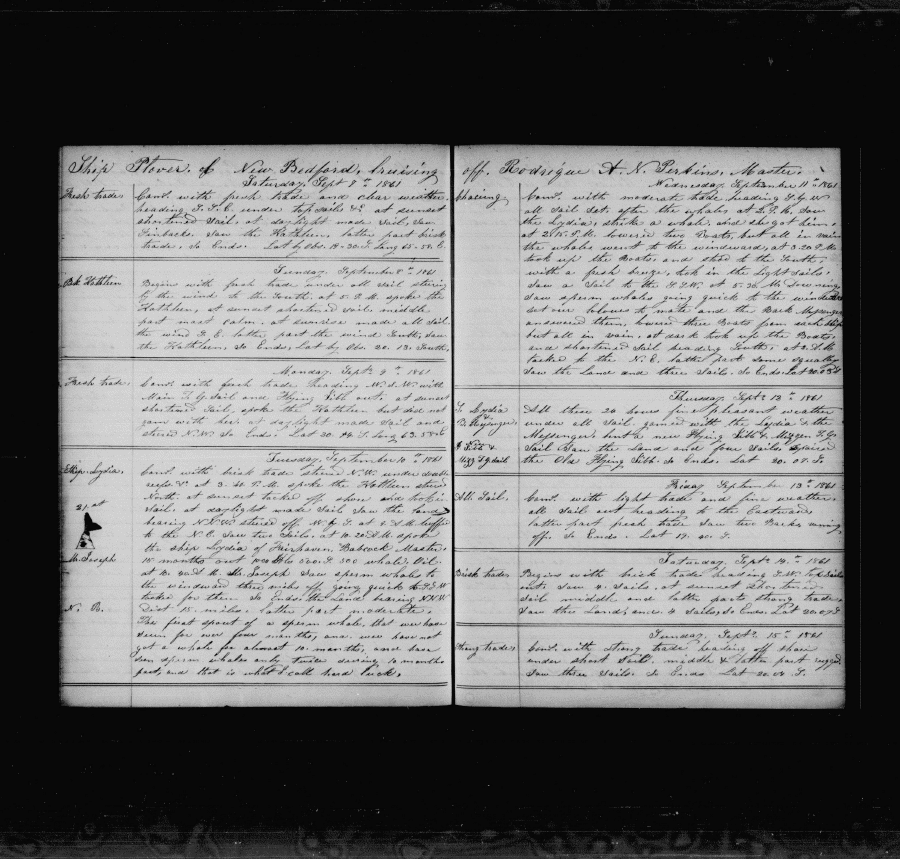 Ship Plover of New Bedford, Cruising
Saturday, Sept 7th 1861
Fresh trade Com. with fresh trade and clear weather
heading S.S.E. under top sails &c at sunset
shortened Sail, at daylight made Sail, Saw
Saw the Kathleen, latter part brisk
trade, So Ends. Lat by Obs.
Sunday September 8th 1861
Bark Kathleen Begins with fresh trade under all Sail steering
by the wind to the South, at 5 P.M. spoke the
Kathleen, at sunset shortened Sail, middle
part most calm, at sunrise made all Sail
the wind S.E. latter part the wind South, saw
the Kathleen, So Ends, Lat by Obs 20.13. South.
Monday Sept. 9th 1861
Fresh trade Com. with fresh trade heading W.S.W. with
Main T.G. Sail and Flying Jibb out, at sunset
shortened Sail, spoke the Kathleen but did not
gam with her, at daylight made Sail and
steered N.W. So Ends. Lat 20. S. Long 63.
Tuesday, September 10th 1861
Ship Lydia Com. with brisk trade steered N.W. under double
reefs &c at 3.40 P.M. spoke the Kathleen steered
North, at sunset tacked off shore and took in
Sail, at daylight made Sail Saw the land
bearing N.N.W. steered off at 8 A.M. luffed
to the N.E. Saw two Sails, at 10.20 A.M. spoke
the ship Lydia of Fairhaven, Babcock Master
15 months out 500 whale Oil
Mr. Joseph at Mr. Joseph Saw sperm whales to
the windward then mile off going quick to S.W.
tacked for them So Ends, the Land bearing N.N.W.
N. B. Dist 15 miles. latter part moderate.
The first spout of a sperm whale, that we have
seen for over four months, and we have not
got a whale for almost 10 months, and have
seen sperm whales only twice during 10 months
past, and that is what I call hard luck.
off Rodrigue A. N. Perkins, Master
Wednesday, September 11th 1861
Chasing Com. with moderate trade heading S.S.W
all Sail Set, after the whales at 2 P.M. Saw
the Lydia, strike a whale, and she got him,
at 2.15 P.M. lowered two Boats, but all in vain
the whales went to the windward, at 3.20 P.M.
took up the Boats, and stood to the South,
with a fresh breeze, took in the light Sails,
Saw a Sail to the S.W. at 5.30 P.M.
Saw sperm whales going quick to the windward
set our colours to mate and the Bark Messenger
answered them, lowered three Boats from each ship
but all in vain, at dark took up the Boats,
and shortened Sail heading South, at 2 A.M
tacked to the N.E. latter part some squally
Saw the Land and three Sails. So Ends Lat
Thursday, Sept. 12th 1861
S. Lydia All these 20 hours fine pleasant weather
B. Messenger under all Sail, gammed with the Lydia & the
Messenger, bent a new Flying Jibb & Mizzen T.G.
F Jibb & Sail Saw the Land and four Sails, repaired
Mizz T.G. Sail the Old Flying Jibb. So Ends. Lat 20.07. S.
Friday September 13th 1861
All Sail Com. with light trade and fine weather
all Sail out heading to the Eastward
latter part fresh trade Saw two Barks running
off. So Ends. Lat 19. 40. S.
Saturday Sept. 14th 1861
Brisk trade Begins with brisk trade heading S.W. top Sails
set, Saw 4 Sails, at sunset
Sail middle and latter parts strong trade,
Saw the Land, and 4 Sails, So Ends. Lat 20.07 S
Sunday, Sept. 15th 1861
Strong trade Com. with strong trade heading off shore
under short Sail, middle & latter part rugged
Saw three Sails. So Ends Lat 20.00 S.